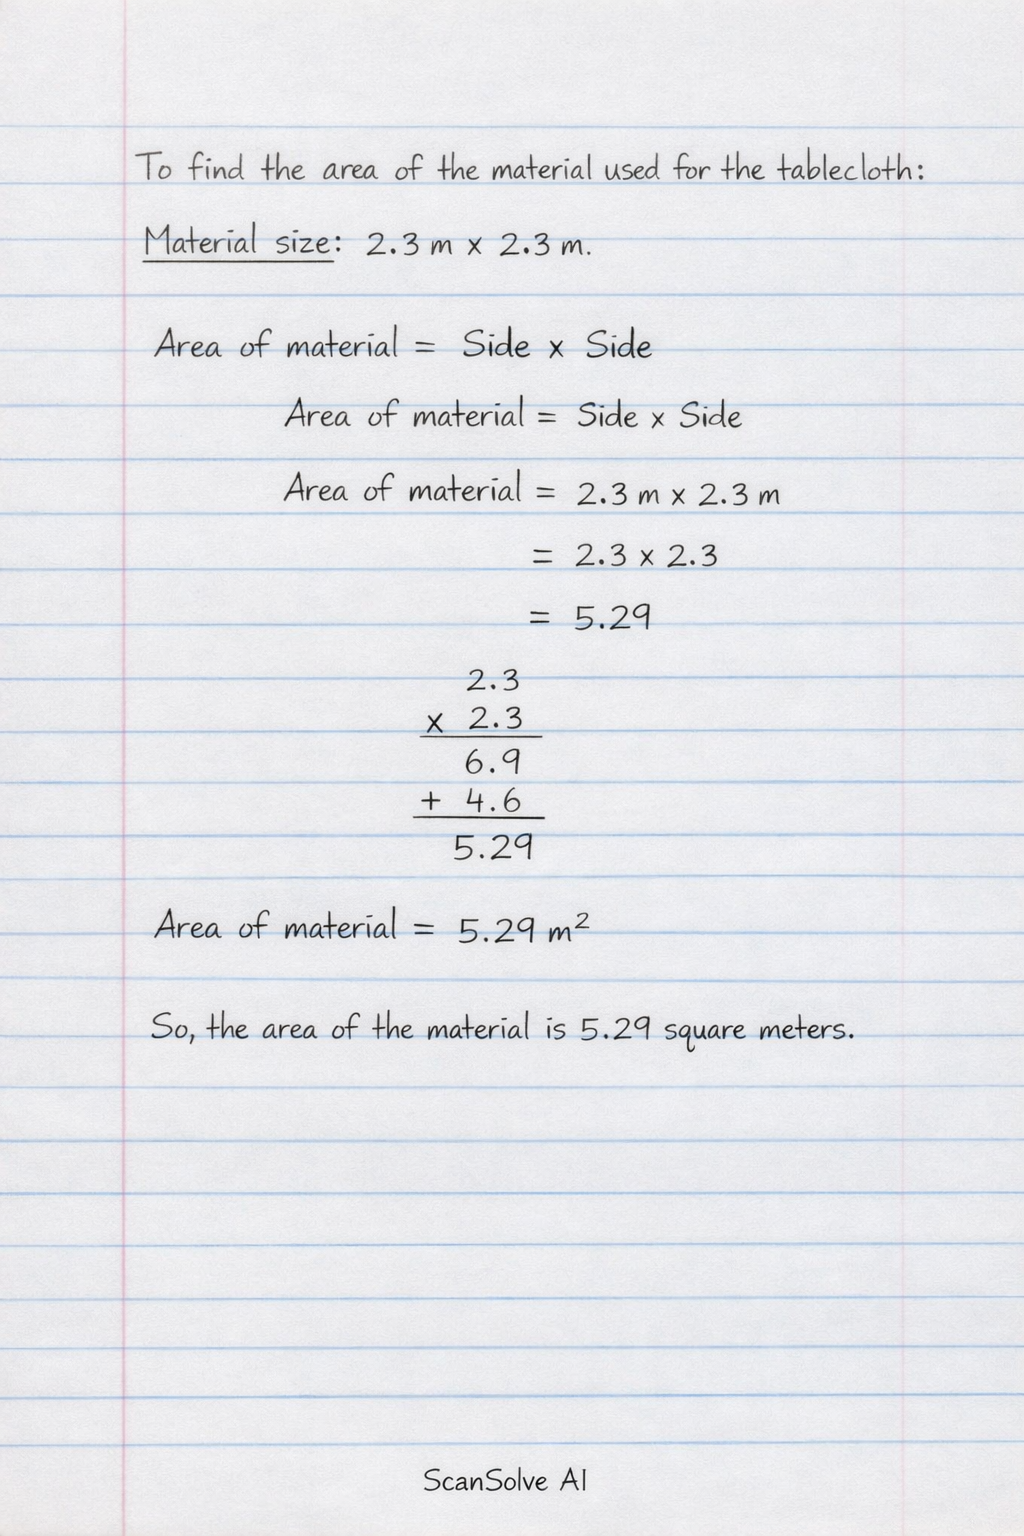 To find the area of the material used for the tablecloth:
Material size: 2.3 m x 2.3 m.
Area of material = Side x Side
Area of material = Side x Side
Area of material = 2.3 m x 2.3 m
= 2.3 x 2.3
= 5.29
2.3
x 2.3
6.9
+ 4.6
5.29
Area of material = 5.29 m²
So, the area of the material is 5.29 square meters.
ScanSolve AI